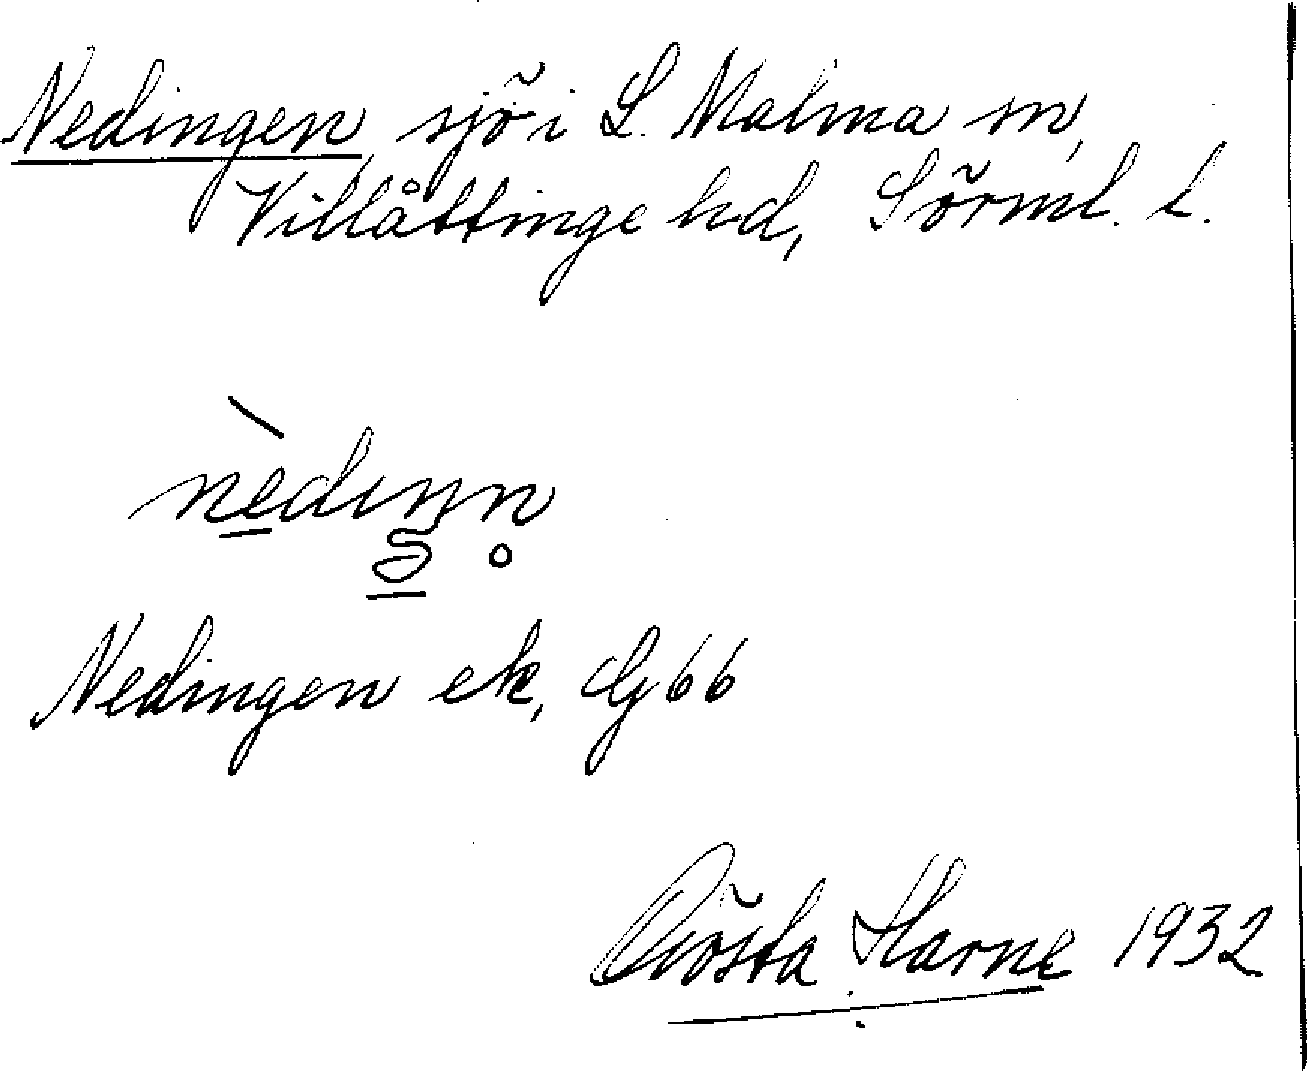 Nedingen sjö i L. Malma sn,
Villåttinge hd, Sörml. l.
nèdıŋn̥
Nedingen ek, G 66
Gösta Harne 1932